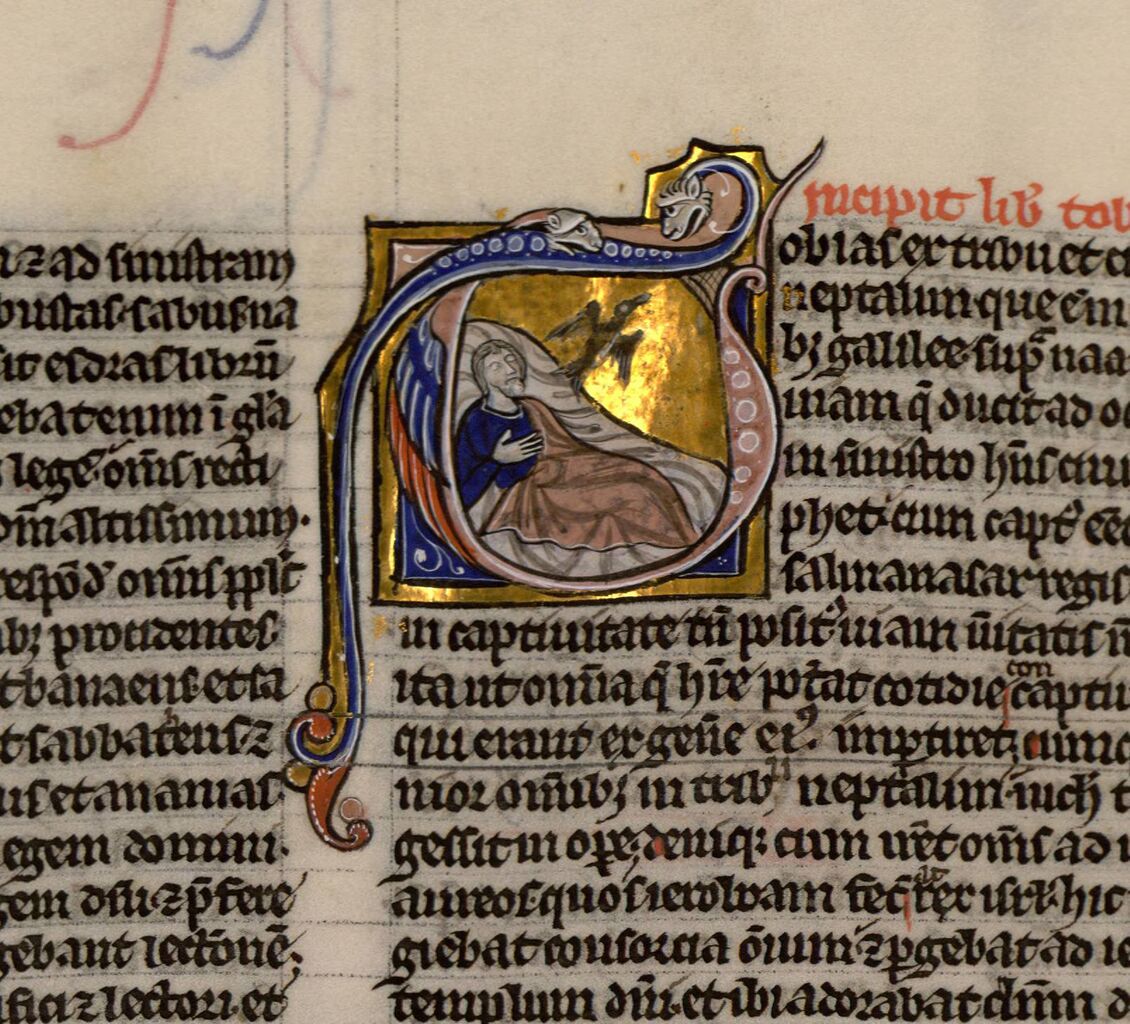 ɿ ad sinistram
bustas· sabus ɿ na
sit esdras librū
ebat enim ī gl̄a
lege· om̄s recti
dm̄ altissimum·
respōd̉ om̄is ppl̉s
abꝫ procidentes
et banaeus· et sa
et sabbateus ɿ
ius et ananias·
legem domini·
gem diſti ɿ p̄fere
gebant lectōnē·
ifici ɿ lectori· et
Incipit lib̉ tob
obias ex tribu et ci
neptalim· que ē in
bꝫ galilee· sup̄ naa
uiam q̄ ducit ad oc
in sinistro hn̄s ciui
phet· cum capt̉ eēt
salmanasar regis
in captiuitate tn̄ posit̉ uiam ūitatis n̄
ita ut om̄ia q̄ hr̄e pot̉at cotidie con captiu
qui erant ex gen̄e ei⁹· imp̄tiret·
nior om̄ibꝫ in tribu neptalim·
gessit in ope· deniqꝫ cum irēt om̄s ad u
aureos· quos ieroboam fec̄ rex isrl̄· hic
giebat consorcia ōium ɿ p̄gebat ad ie
templum dn̄i· et ibi adorabat dn̄m d